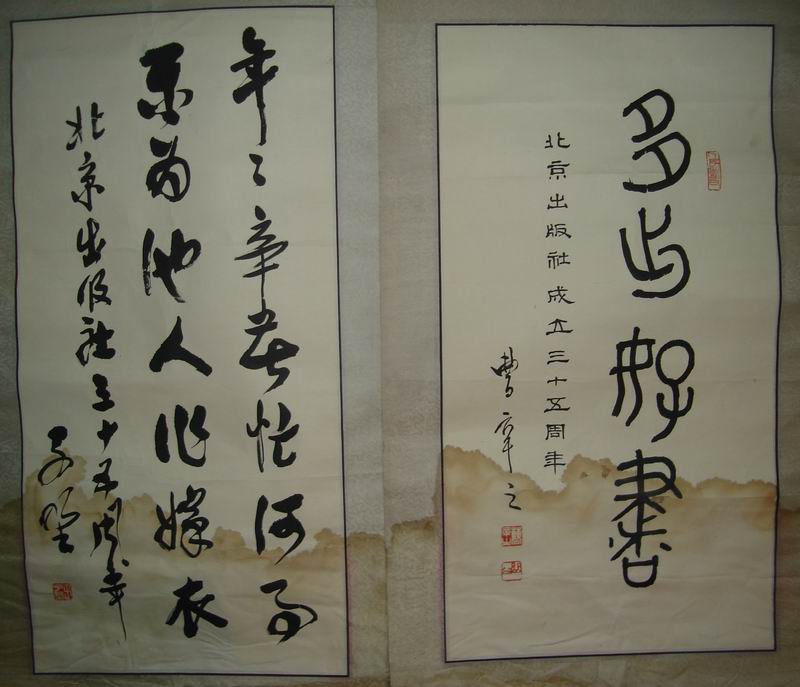 多出好書
北京出版社成立三十五周年
曹辛之
年〻辛苦忙何事
乐为他人作嫁衣
北京出版社三十五周年
子野